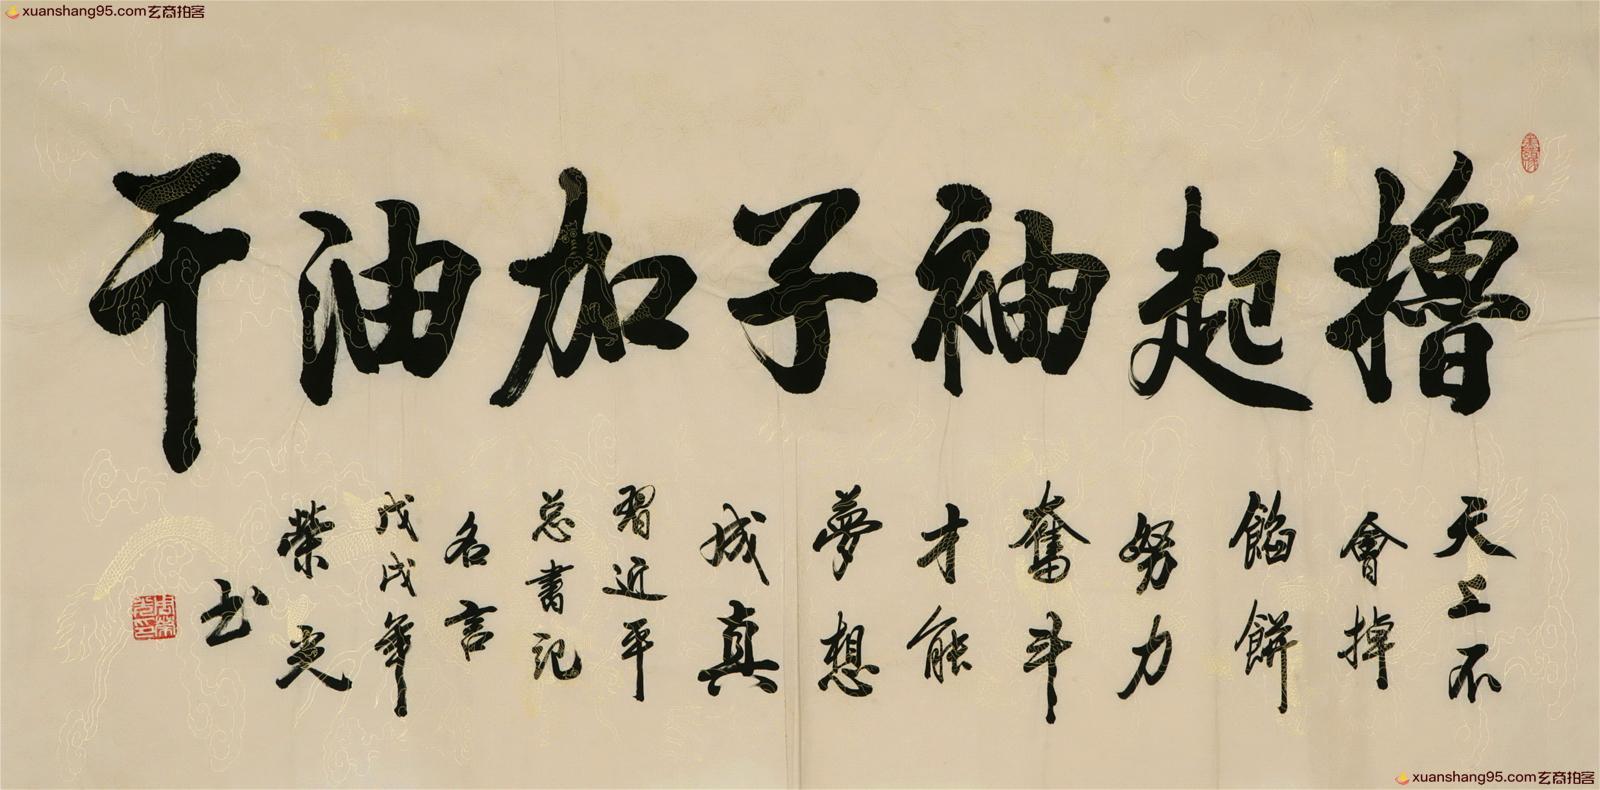 xuanshang95.com玄商拍客
撸起袖子加油干
天上不
會掉
餡餅
努力
奮斗
才能
夢想
成真
習近平
总書記
名言
戊戌年
榮光
书
xuanshang95.com玄商拍客